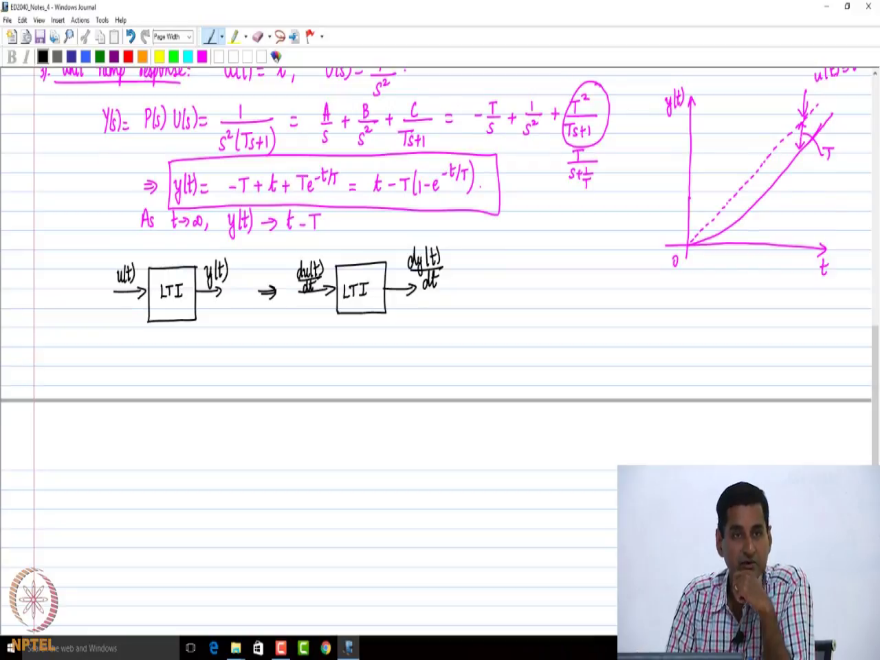 ED2040_Notes_4 - Windows Journal
File Edit View Insert Actions Tools Help
Page Width
B I
3). Unit ramp response: u(t) = t, U(s) = 1/s²
Y(s) = P(s) U(s) = 1/(s²(Ts+1)) = A/s + B/s² + C/(Ts+1) = -T/s + 1/s² + T²/(Ts+1)
T/(s+1/T)
⇒ y(t) = -T + t + Te^(-t/T) = t - T(1-e^(-t/T)).
As t→∞, y(t) → t - T
y(t)
T
0
t
u(t) LTI y(t) ⇒ du(t)/dt LTI dy(t)/dt
NPTEL
the web and Windows